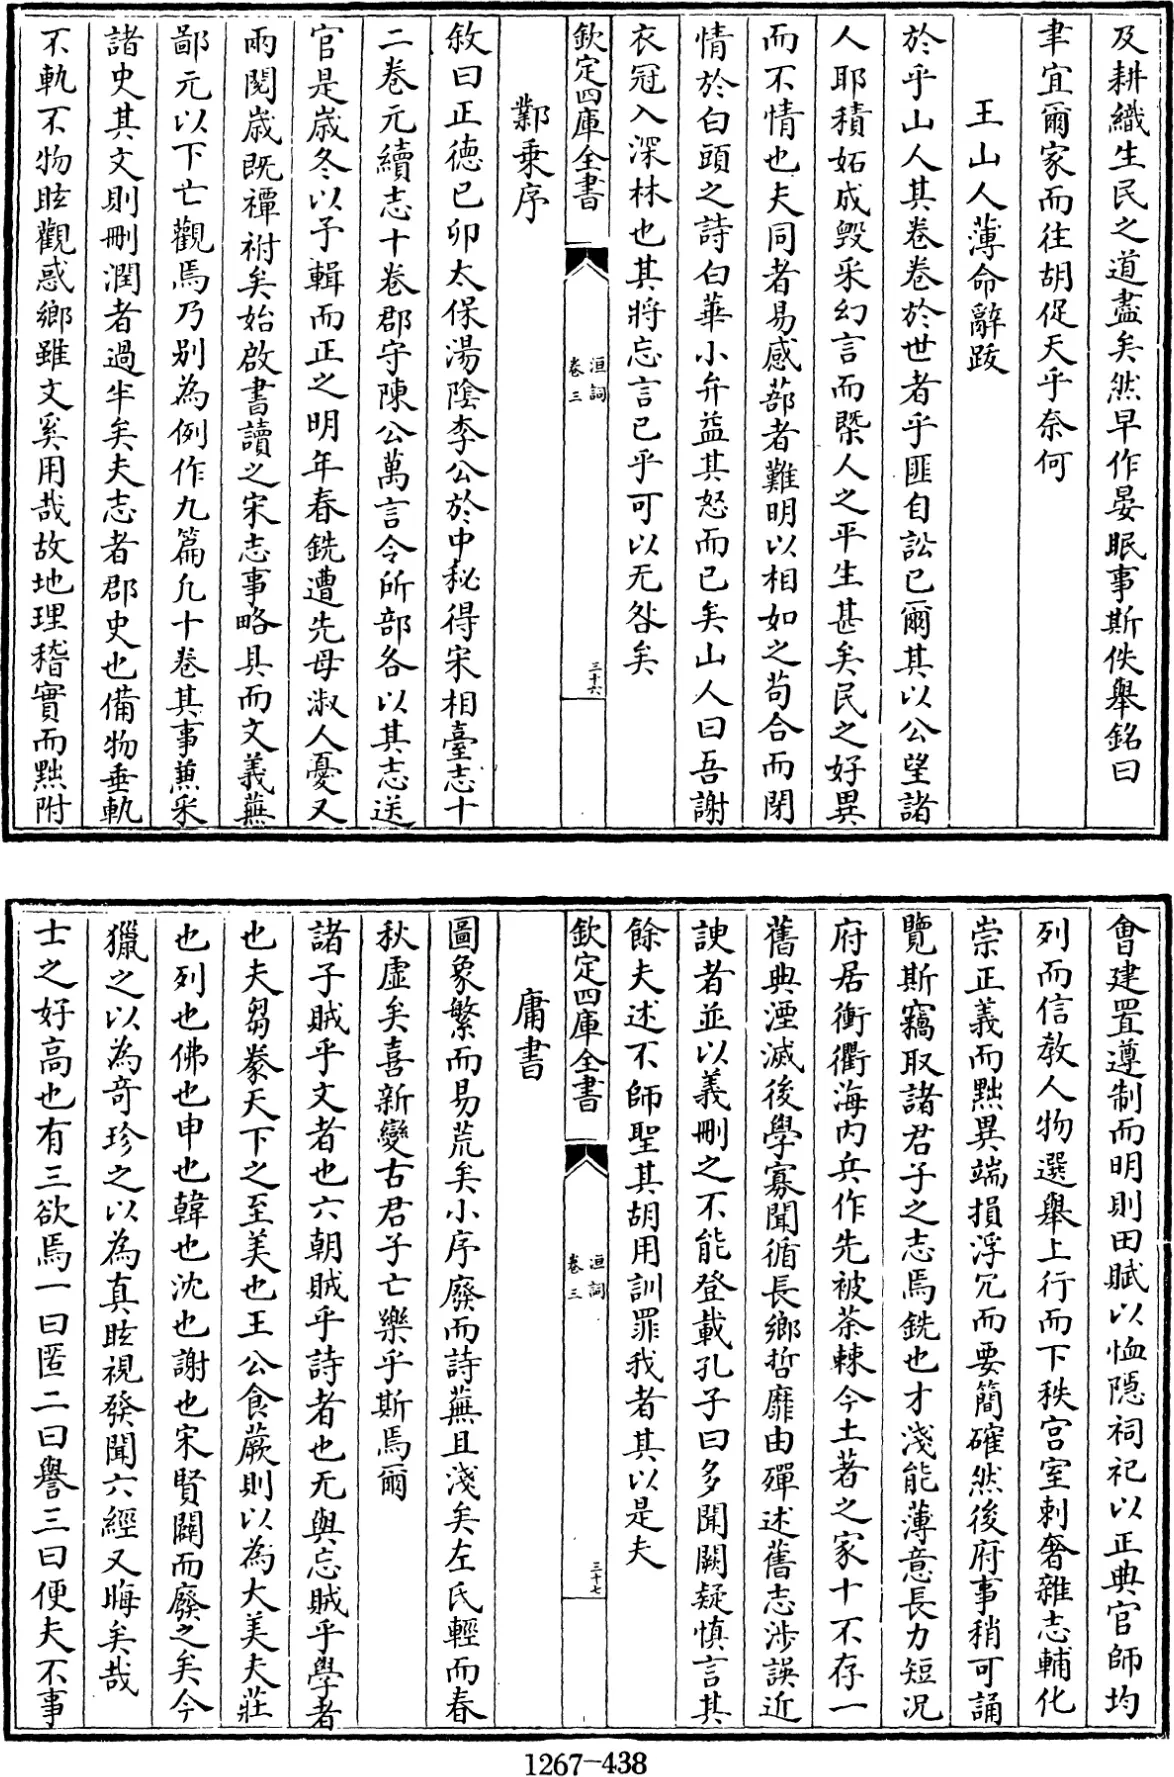 及耕織生民之道盡矣然早作晏眠事斯佚舉銘曰
聿宜爾家而往胡促天乎奈何
王山人薄命辭跋
於乎山人其卷卷於世者乎匪自訟已爾其以公望諸
人耶積妬成毁采幻言而槩人之平生甚矣民之好異
而不情也夫同者易感蔀者難明以相如之苟合而閉
情於白頭之詩白華小弁益其怒而已矣山人曰吾謝
衣冠入深林也其將忘言已乎可以无咎矣
欽定四庫全書
洹詞
卷三
三十六
鄴乘序
敘曰正德己卯太保湯陰李公於中秘得宋相臺志十
二卷元續志十卷郡守陳公萬言令所部各以其志送
官是歲冬以予輯而正之明年春銑遭先母淑人憂又
兩閱歲既禫祔矣始啟書讀之宋志事略具而文義蕪
鄙元以下亡觀焉乃别為例作九篇凡十卷其事蒐采
諸史其文則刪潤者過半矣夫志者郡史也備物垂軌
不軌不物眩觀惑鄉雖文奚用哉故地理稽實而黜附
會建置遵制而明則田賦以恤隱祠祀以正典官師均
列而信教人物選舉上行而下秩宫室刺奢雜志輔化
崇正義而黜異端損浮冗而要簡確然後府事稍可誦
覽斯竊取諸君子之志焉銑也才淺能薄意長力短况
府居衝衢海内兵作先被荼棘今土著之家十不存一
舊典湮滅後學寡聞循長鄉哲靡由殫述舊志涉誤近
諛者並以義刪之不能登載孔子曰多聞闕疑慎言其
餘夫述不師聖其胡用訓罪我者其以是夫
欽定四庫全書
洹詞
卷三
三十七
庸書
圖象繁而易荒矣小序廢而詩蕪且淺矣左氏輕而春
秋虛矣喜新變古君子亡樂乎斯焉爾
諸子賊乎文者也六朝賊乎詩者也无與忘賊乎學者
也夫芻豢天下之至美也王公食蕨則以為大美夫莊
也列也佛也申也韓也沈也謝也宋賢闢而廢之矣今
獵之以為奇珍之以為真眩視發聞六經又晦矣哉
士之好高也有三欲焉一曰匿二曰譽三曰便夫不事
1267-438